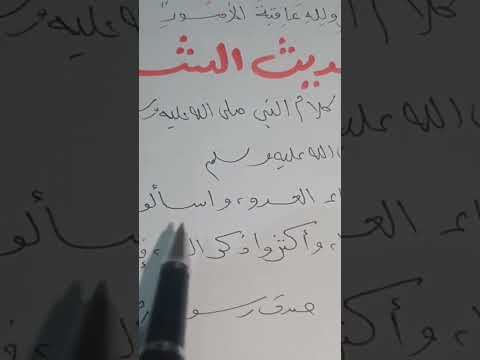 ولله عاقبة الأمور
ديث الش
كلام النبي صلى الله عليه و
الله عليه وسلم
اء العدو، واسألو
، وأكثروا ذكر ال
صدق رسو